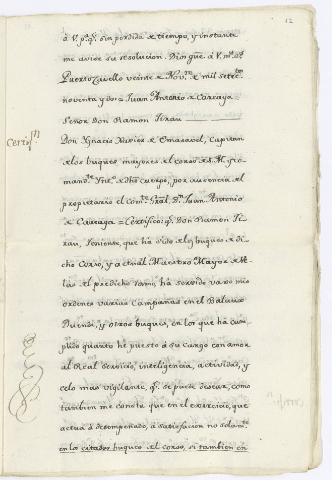 12
á V. pa. qe. sin perdida de tiempo, y instante
me avise su resolucion. Dios gue. á V. ms. as.
Puerto Cavello veinte de Nove. de mil setec.
noventa y dos = Juan Antonio de Careaga =
Señor Don Ramon Tirau
Certifn.
Don Ygnacio Xavier de Emasavel, Capitan
de los buques mayores del corso de S. M. y co-
mande. Yno. de dho cuerpo, por ausencia del
propietario el comte. Gral. Dn. Juan Antonio
de Careaga = Certifico: qe. Don Ramon Ti-
rau, Teniente, que há sido de los buques de di-
cho Corso, y actual Maestro Mayor de Ve-
las del predicho ramo, há servido vajo mis
ordenes varias Campañas en el Balaux
Duende, y otros buques, en los que há cum-
plido quanto he puesto á su cargo con amor
al Real servicio, inteligencia, actividad, y
celo mas vigilante, qe. se puede desear, como
tambien me consta que en el exercicio, que
actua á desempeñado, á satisfacion no solamte.
en los citados buques del corso, si tambien en